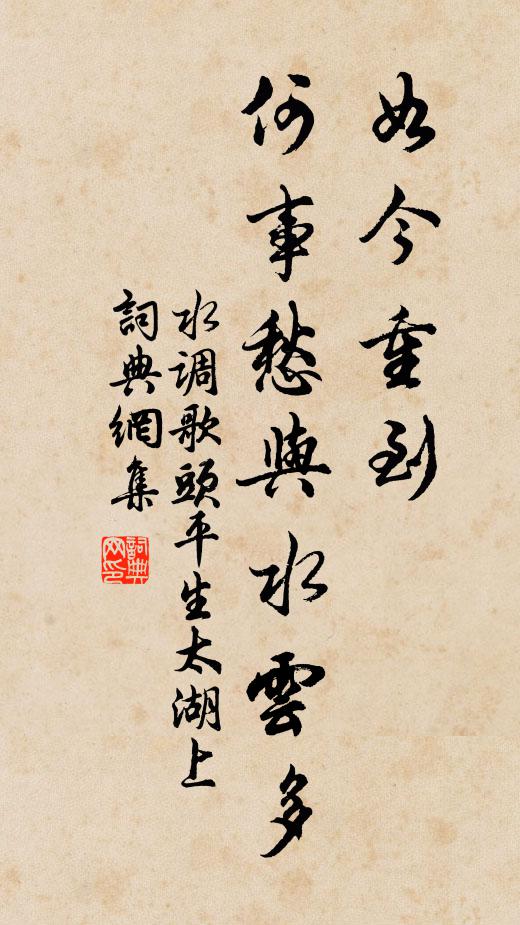 如今重到
何事愁與水雲多
水调歌頭平生太湖上
詞典網集
詞典网印